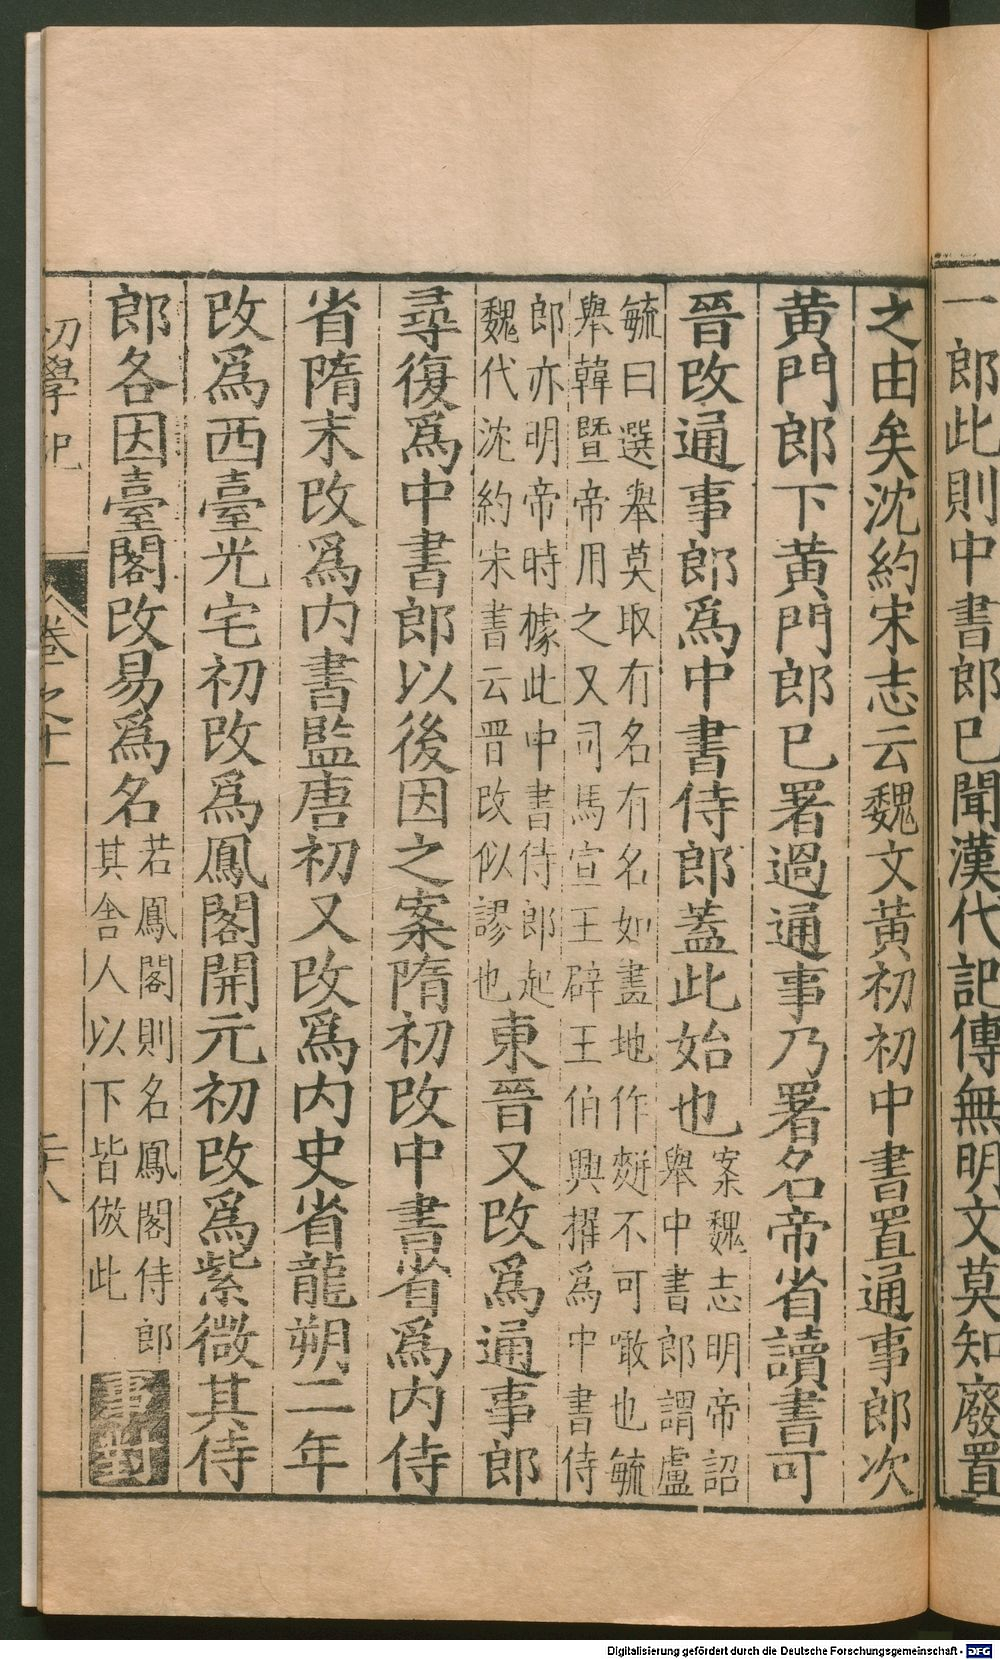 一郎此則中書郎已聞漢代記傳無明文莫知廢置
之由矣沈約宋志云魏文黃初初中書置通事郎次
黃門郎下黃門郎已署過通事乃署名帝省讀書可
晉改通事郎爲中書侍郎蓋此始也
案魏志明帝詔
舉中書郎謂盧
毓曰選舉莫取有名有名如畫地作䴵不可噉也毓
舉韓暨帝用之又司馬宣王辟王伯興擢爲中書侍
郎亦明帝時據此中書侍郎起
魏代沈約宋書云晉改似謬也
東晉又改爲通事郎
尋復爲中書郎以後因之案隋初改中書省爲内侍
省隋末改爲内書監唐初又改爲内史省龍朔二年
改爲西臺光宅初改爲鳳閣開元初改爲紫微其侍
郎各因臺閣改易爲名
若鳳閣則名鳳閣侍郎
其舍人以下皆倣此
事對
初學記
卷之十一
二十八
Digitalisierung gefördert durch die Deutsche Forschungsgemeinschaft - DFG